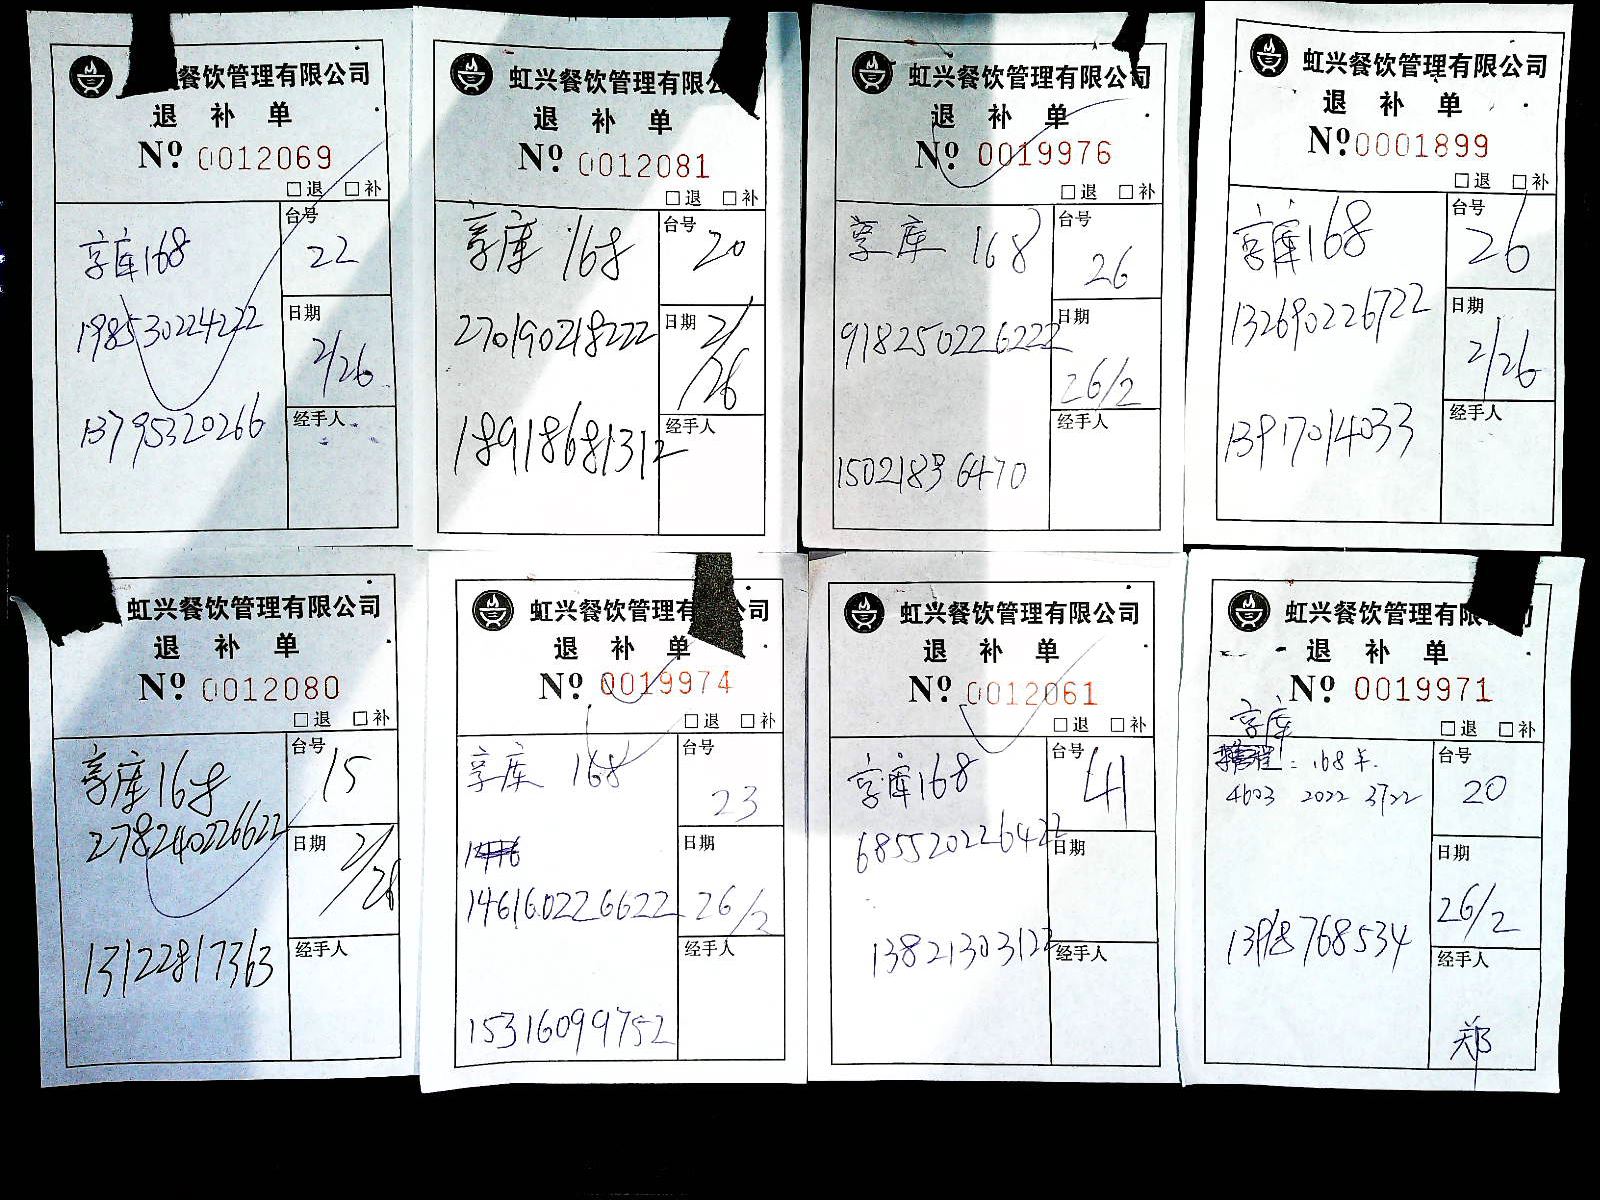 餐饮管理有限公司
退 补 单
Nº 0012069
□退 □补
享库168
台号
22
198530224222
日期
2/26
13795320266
经手人
虹兴餐饮管理有限公
退 补 单
Nº 0012081
□退 □补
享库 168
台号
20
270190218222
日期
2/26
18918681312
经手人
虹兴餐饮管理有限公司
退 补 单
Nº 0019976
□退 □补
享库 168
台号
26
918250226222
日期
26/2
经手人
虹兴餐饮管理有限公司
退 补 单
Nº 0001899
□退 □补
享库168
台号
26
132690226722
日期
2/26
13917014033
经手人
虹兴餐饮管理有限公司
退 补 单
Nº 0012080
□退 □补
享库168
台号
15
278240226622
日期
2/26
13122817363
经手人
虹兴餐饮管理有 司
退 补 单
Nº 0019974
□退 □补
享库 168
台号
23
146160226622
日期
26/2
15316099752
经手人
虹兴餐饮管理有限公司
退 补 单
Nº 0012061
□退 □补
享库168
台号
41
685520226422
日期
13821303122
经手人
虹兴餐饮管理有限 司
退 补 单
Nº 0019971
□退 □补
享库
：168卡.
4603 2022 3722
台号
20
日期
26/2
13918768534
经手人
郑